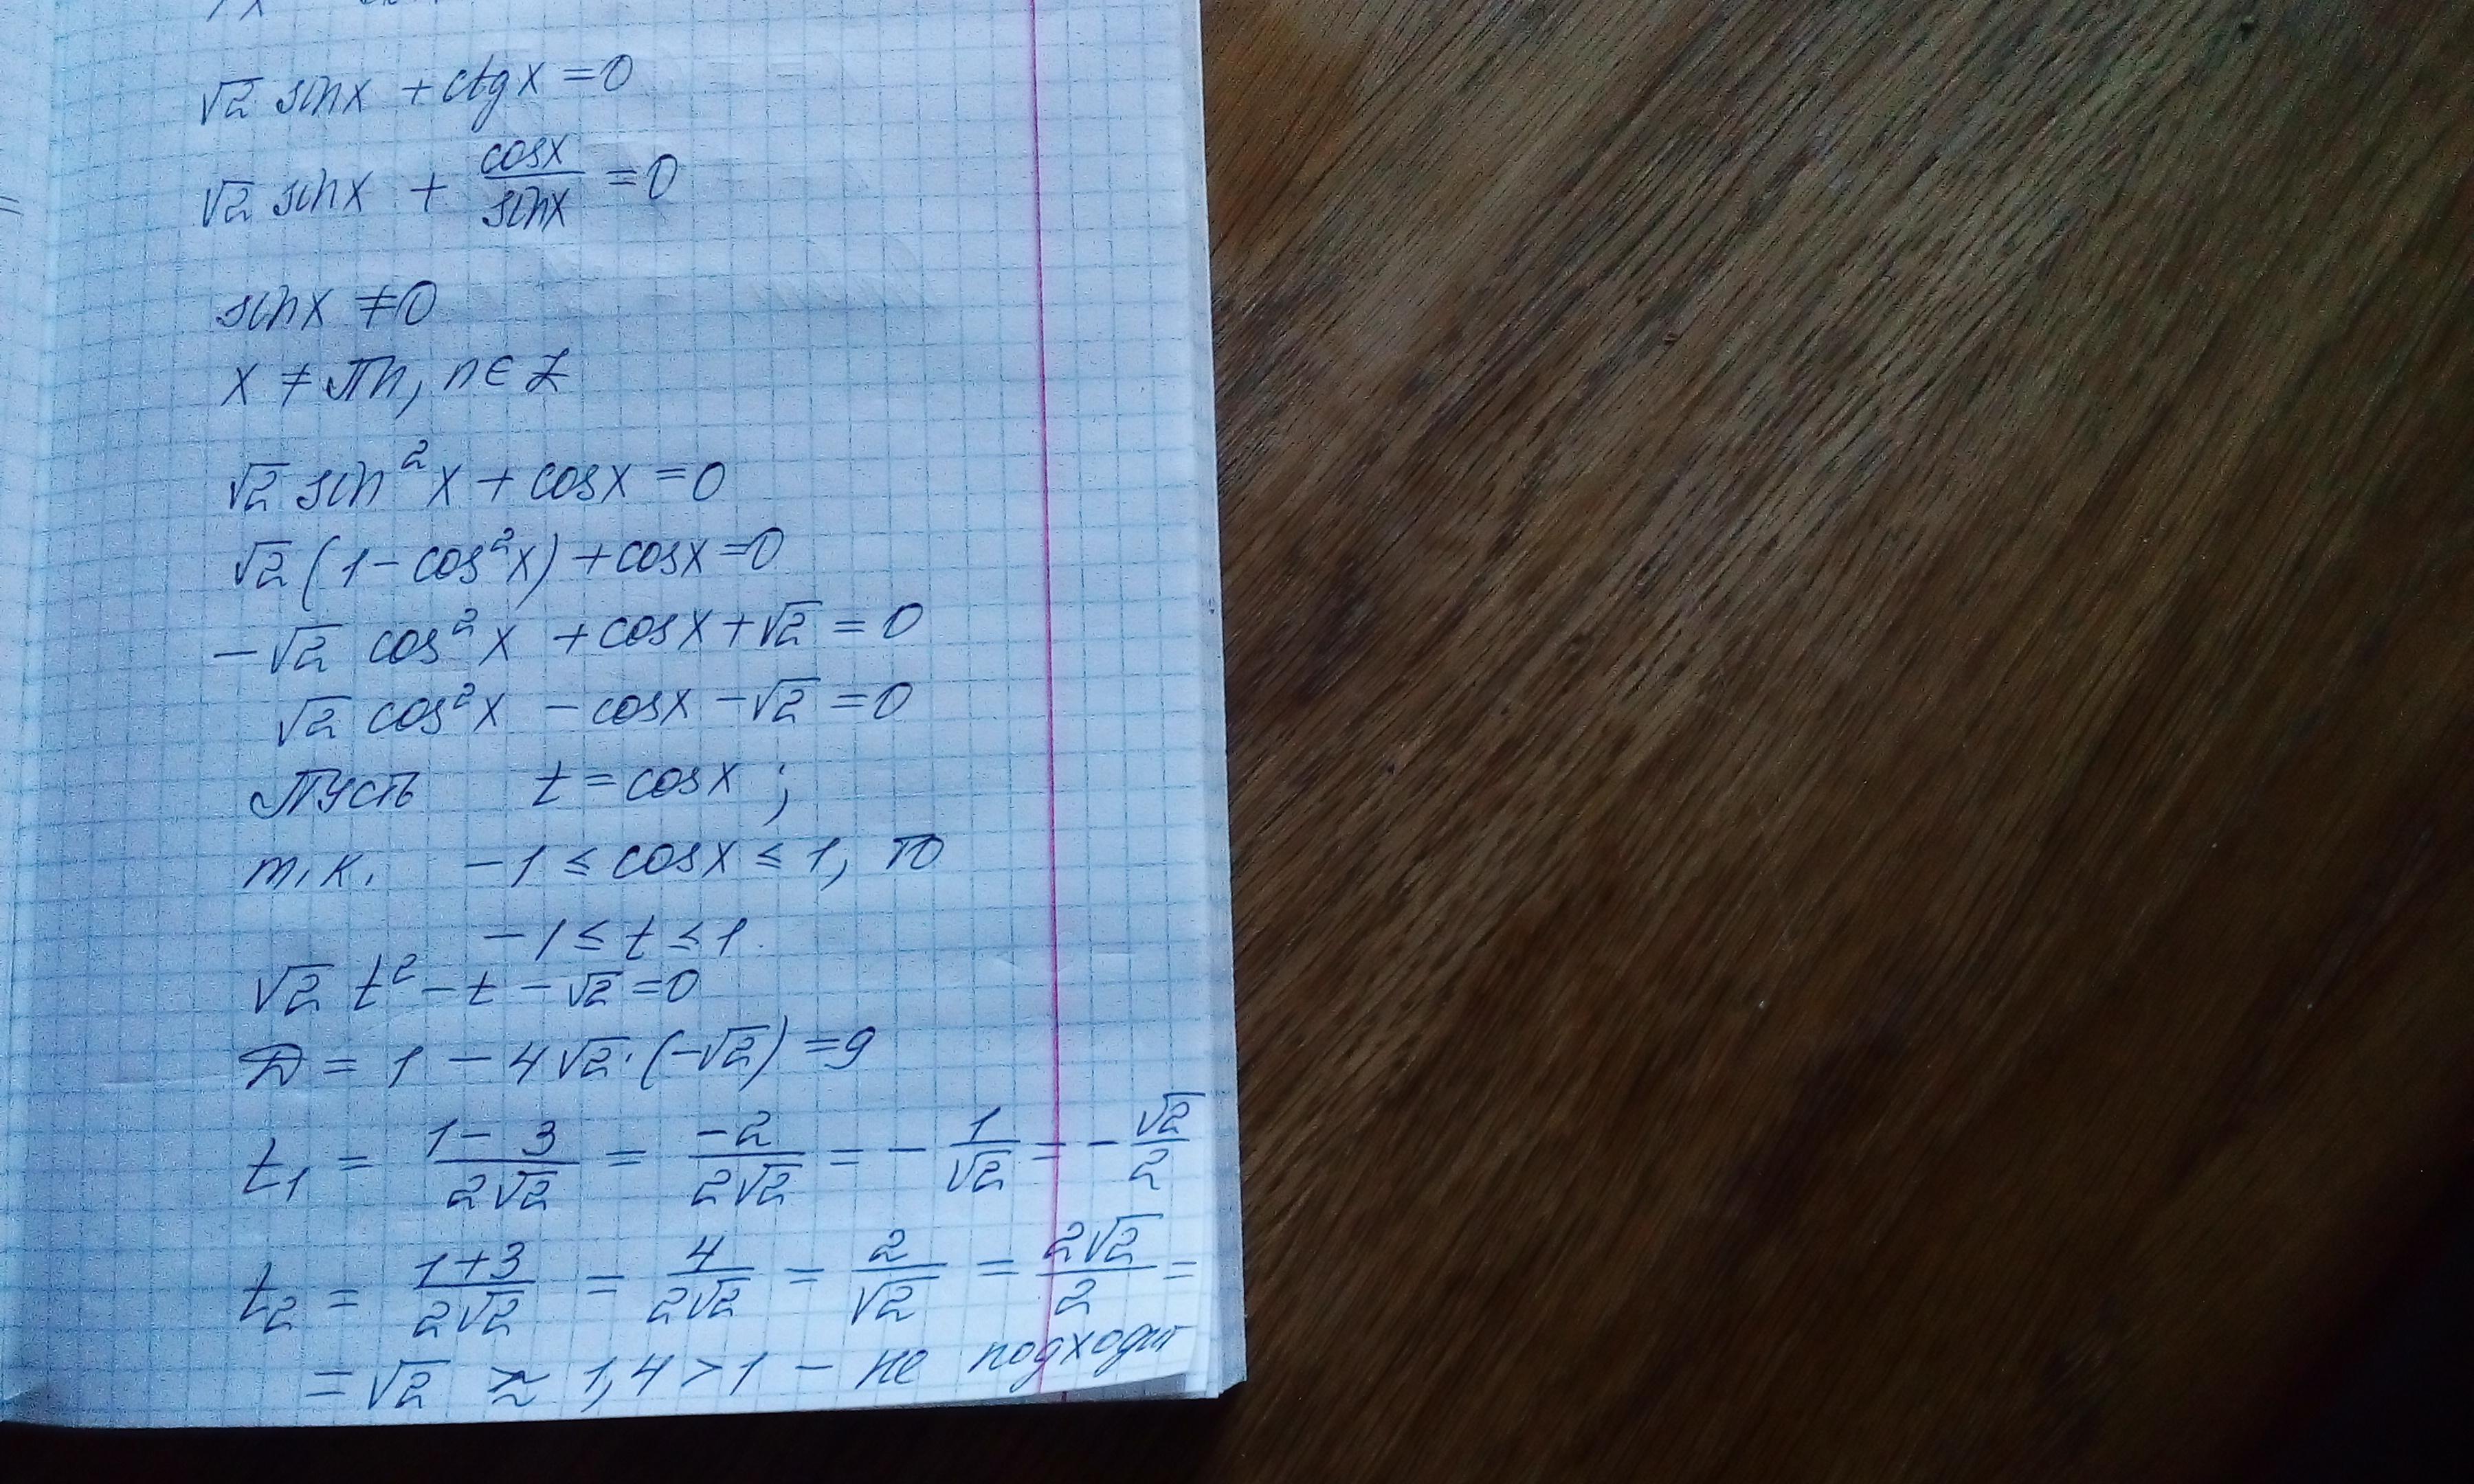 √2 sinx + ctgx = 0
√2 sinx + cosx/sinx = 0
sinx ≠ 0
x ≠ πn, n ∈ Z
√2 sin²x + cosx = 0
√2 (1 - cos²x) + cosx = 0
-√2 cos²x + cosx + √2 = 0
√2 cos²x - cosx - √2 = 0
Пусть t = cosx ;
т.к. -1 ≤ cosx ≤ 1, то
-1 ≤ t ≤ 1.
√2 t² - t - √2 = 0
D = 1 - 4√2·(-√2) = 9
t₁ = (1-3)/(2√2) = -2/(2√2) = - 1/√2 = - √2/2
t₂ = (1+3)/(2√2) = 4/(2√2) = 2/√2 = 2√2/2 =
= √2 ≈ 1,4 > 1 - не подходит